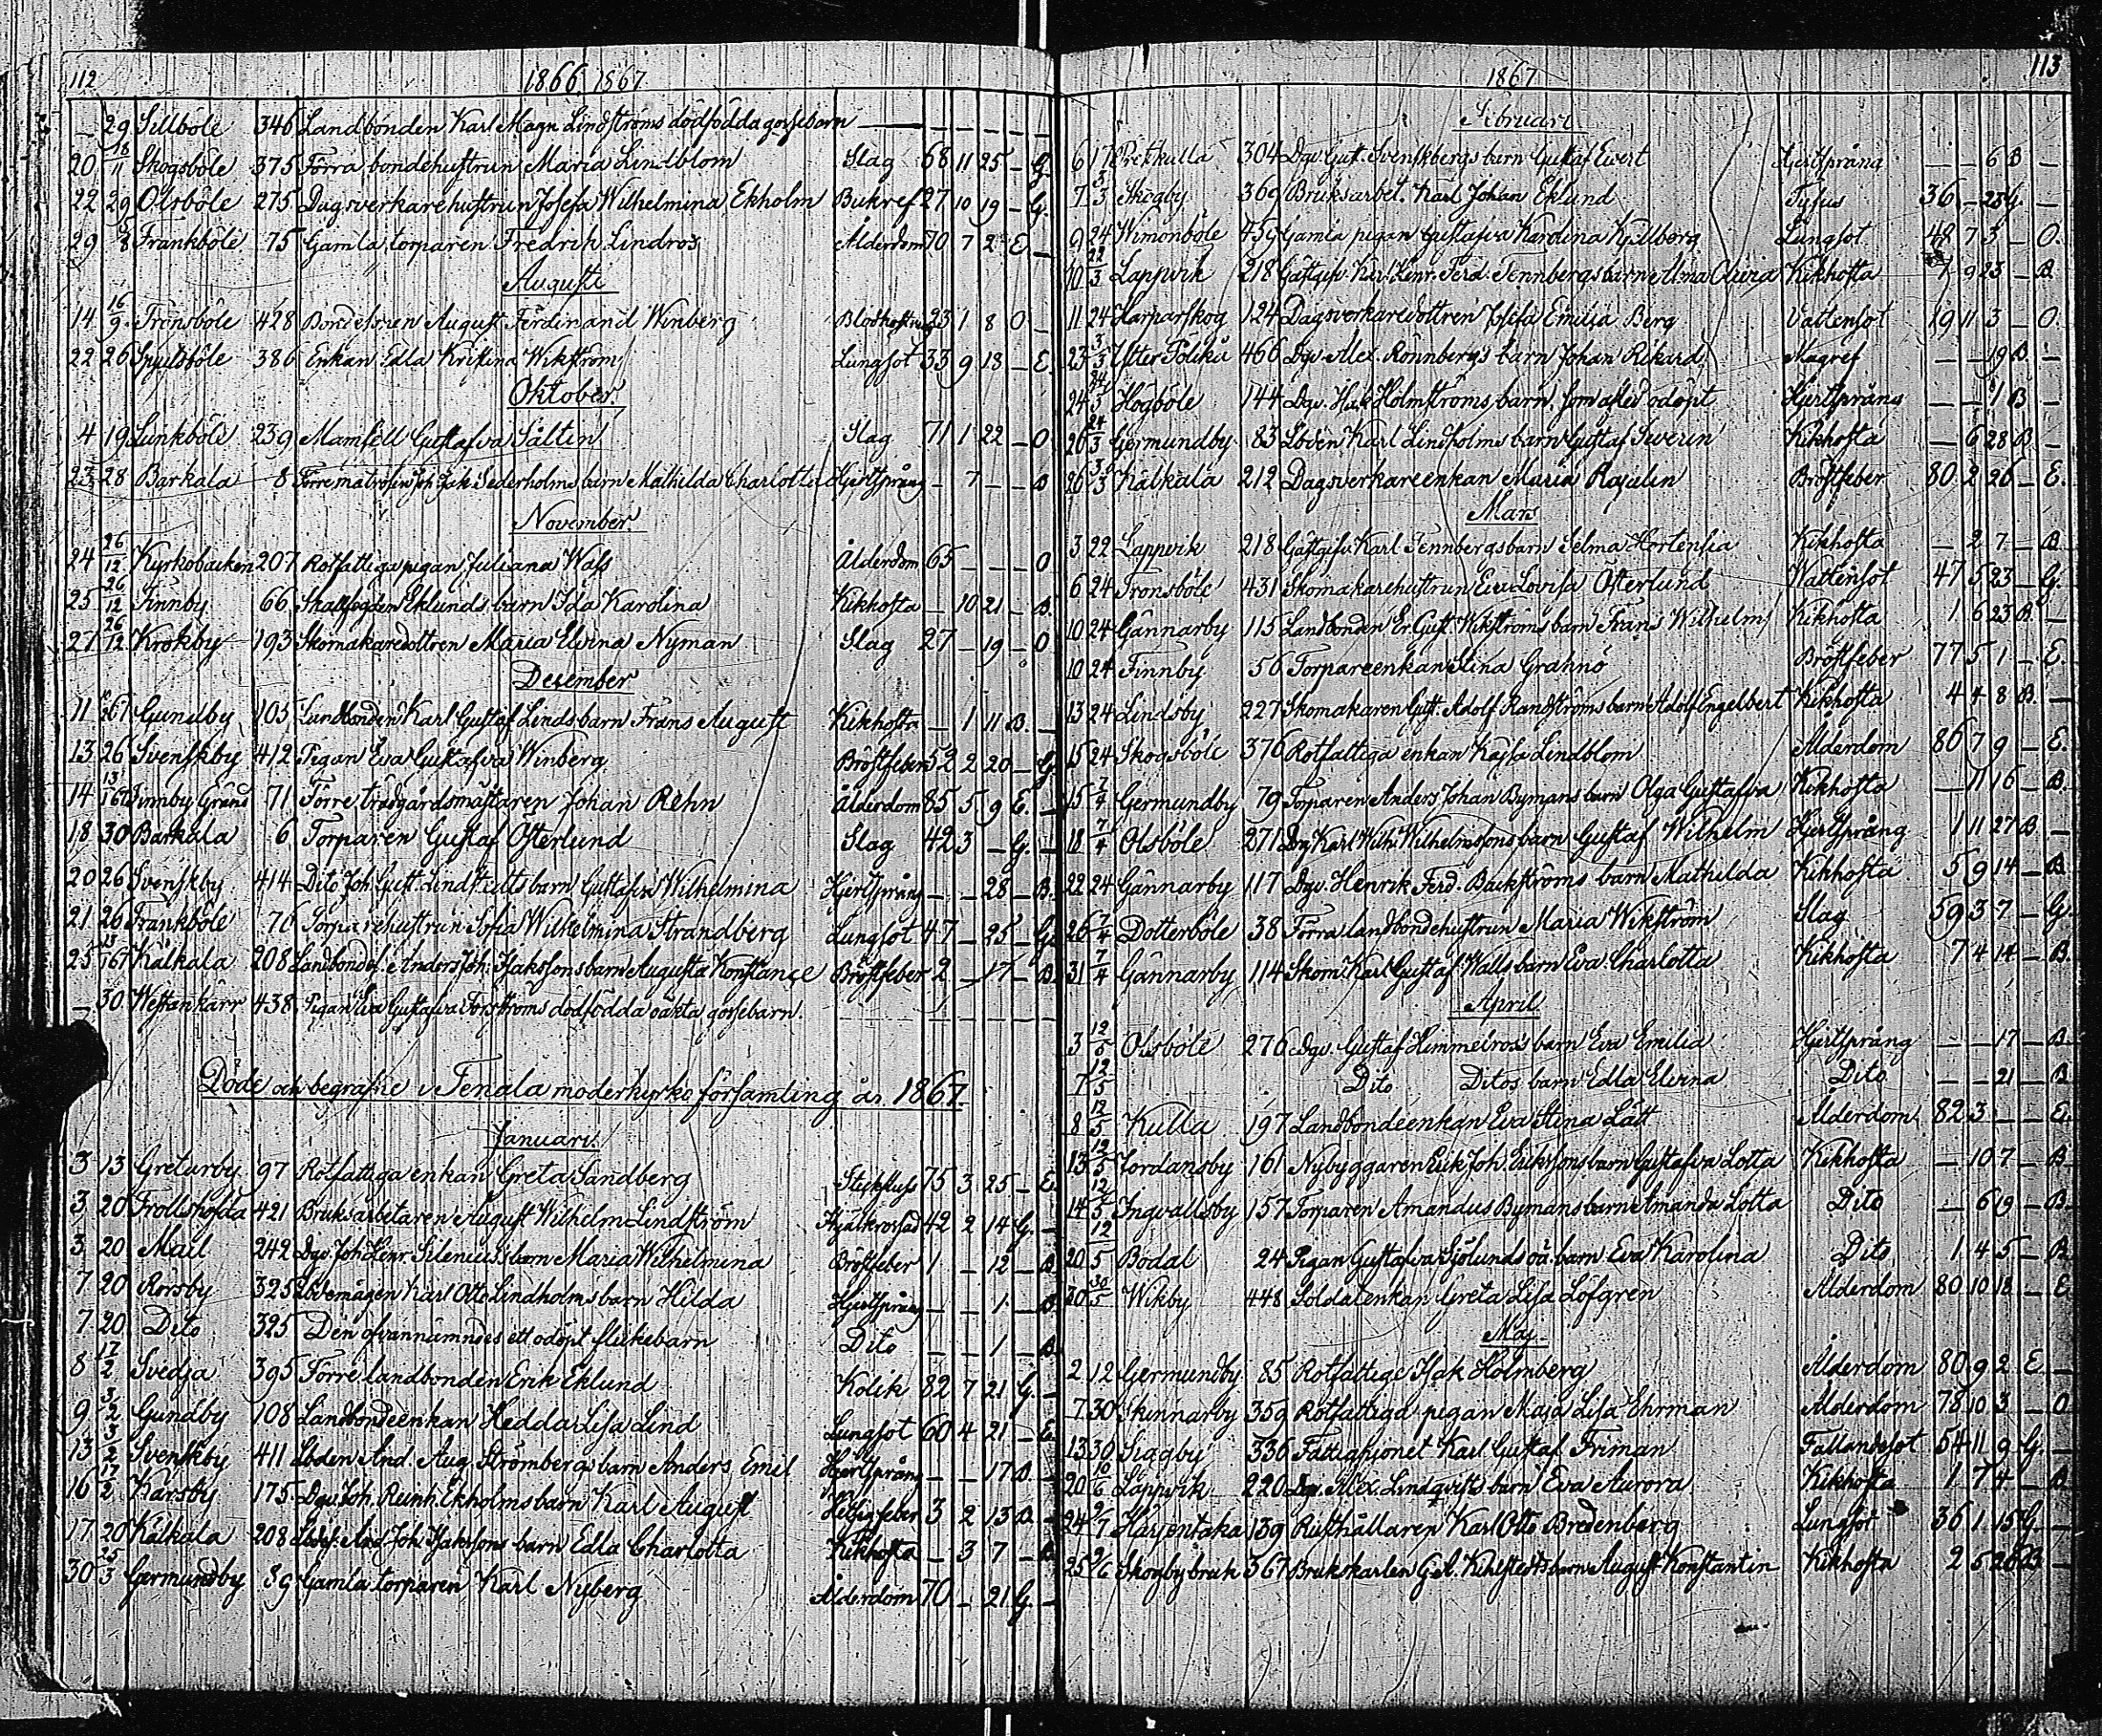 112
1866, 1867
— 29 Sillböle 346 Landbonden Karl Magn Lindströms dödfödda gossebarn — — — — —
20 18/11 Skogsböle 375 Förra bondehustrun Maria Lindblom Slag 68 11 25 — G.
22 29 Olsböle 275 Dagsverkarehustrun Josefa Wilhelmina Ekholm Bukref 27 10 19 — G.
29 5/8 Frankböle 75 Gamla torparen Fredrik Lindros Ålderdom 70 7 2 E —
Augusti
14 16/9 Trönsböle 428 Bondesonen August Ferdinand Winberg Blodhostning 23 1 8 O —
22 26 Spjutsböle 386 Enkan Edla Kristina Wikström Lungsot 33 9 18 — E
Oktober
4 19 Lunkböle 239 Mamsell Gustafva Sältin Slag 71 1 22 — O
23 28 Barkala 8 Förre matrosen Joh. Isak Sederholms barn Mathilda Charlotta Hjertsprång — 7 — — B
November
24 26/12 Kyrkobacken 207 Rotfattiga pigan Juliana Wass Ålderdom 65 — — — O
25 26/12 Finnby 66 Skallfogden Eklunds barn Ida Karolina Kikhosta — 10 21 — B.
27 26/12 Krokby 193 Skomakaredottren Maria Elvina Nyman Slag 27 — 19 — O
December
11 67 Gundby 105 Landbonden Karl Gustaf Linds barn Frans August Kikhosta — 1 11 B. —
13 26 Svenskby 412 Pigan Eva Gustafva Winberg Bröstfeber 52 2 20 — G
14 13/1 67 Finnby Gränd 71 Förre trädgårdsmästaren Johan Rehn Ålderdom 85 5 9 E. —
18 30 Barkala 6 Torparen Gustaf Österlund Slag 42 3 — G. —
20 26 Svenskby 414 Dito Joh. Gust. Lindstedts barn Gustafva Wilhelmina Hjertsprång — — 28 — B.
21 26 Frankböle 76 Torparehustrun Sofia Wilhelmina Strandberg Lungsot 47 — 25 — G.
25 13/1 67 Kälkala 208 Landbondes. Anders Joh. Isakssons barn Augusta Konstance Bröstfeber 2 — 17 — B.
— 30 Westankärr 438 Pigan Eva Gustafva Forströms dödfödda oäkta gossebarn. — — — — —
Döde och begrafne i Tenala moderkyrko församling år 1867
Januari.
3 13 Gretarby 97 Rotfattiga enkan Greta Sandberg Stickfluss 75 3 25 — E.
3 20 Trollshofda 421 Bruksarbetaren August Wilhelm Lindström 42 2 14 G. —
3 20 Mail 242 Dgv. Joh. Henr. Silenius's barn Maria Wilhelmina Bröstfeber 1 — 12 — B
7 20 Rörsby 325 Lbdemågen Karl Otto Lindholms barn Hilda Hjertsprång — — 1 — B
7 20 Dito 325 Den ofvannämndes ett odöpt flickebarn Dito — — 1 — B.
8 17/2 Svedja 395 Förre landbonden Erik Eklund Kolik 82 7 21 G. —
9 3/2 Gundby 108 Landbondeenkan Hedda Lisa Lind Lungsot 60 4 21 — E.
13 3/2 Svenskby 411 Lbden And. Aug. Strömbergs barn Anders Emil Hjertsprång — — 17 B. —
16 17/2 Karsby 175 Dgv. Joh. Reinh. Ekholms barn Karl August Hetsigfeber 3 2 13 B. —
17 20 Kälkala 208 Lbdes. And. Joh. Isakssons barn Edla Charlotta Kikhosta — 3 7 — B
30 25/3 Germundby 89 Gamla torparen Karl Nyberg Ålderdom 70 — 21 G. —
1867
113
Februari.
6 17 Prestkulla 304 Dgv. Gust. Svenskbergs barn Gustaf Evert Hjertsprång — — 6 B —
7 3/3 Skogby 369 Bruksarbet. Karl Johan Eklund Tyfus 36 — 23 G. —
9 24 Wimonböle 459 Gamla pigan Gustafva Karolina Kjellberg Lungsot 48 7 3 — O.
10 22/3 Lappvik 218 Gästgifv. Karl Henr. Ferd. Tennbergs barn Alma Olivia Kikhosta 9 23 — B
11 24 Harparskog 124 Dagsverkaredottren Josefa Emilia Berg Vattensot 19 11 3 — O.
23 3/3 Öster Polikå 466 Dgv. Alex. Rönnbergs barn Johan Rikard Magref — — 19 B. —
24 24/3 Högböle 144 Dgv. Holmströms barn, som afled odöpt Hjertsprång — — 1 B —
26 24/3 Germundby 83 Lbden Karl Lindholms barn Gustaf Severin Kikhosta — 6 28 B —
26 3/3 Kälkala 212 Dagsverkareenkan Maria Rosalin Bröstfeber 80 2 26 — E.
Mars
3 22 Lappvik 218 Gästgifv. Karl Tennbergs barn Selma Hortensia Kikhosta — 2 7 — B
6 24 Trönsböle 431 Skomakarehustrun Eva Lovisa Österlund Wattensot 47 5 23 — G.
10 24 Gännarby 115 Landbonden Er. Gust. Wikströms barn Frans Wilhelm Kikhosta 1 6 23 B. —
10 24 Finnby 56 Torpareenkan Stina Grahnö Bröstfeber 77 5 1 — E.
13 24 Lindsby 227 Skomakaren Gust. Adolf Randströms barn Adolf Engelbert Kikhosta 4 4 8 B. —
15 24 Skogsböle 376 Rotfattiga enkan Kajsa Lindblom Ålderdom 86 7 9 — E.
15 7/4 Germundby 79 Torparen Anders Johan Bymans barn Olga Gustafva Kikhosta — 11 16 — B.
18 7/4 Olsböle 271 Dgv. Karl Wilh. Wilhelmssons barn Gustaf Wilhelm Hjertsprång 1 11 27 B —
22 24 Gännarby 117 Dgv. Henrik Ferd. Backströms barn Mathilda Kikhosta 5 9 14 — B
26 7/4 Dotterböle 38 Förra landbondehustrun Maria Wikström Slag 59 3 7 — G.
31 7/4 Gännarby 114 Skom. Karl Gustaf Walls barn Eva Charlotta Kikhosta 7 4 14 — B.
April
3 12/5 Olsböle 276 Dgv. Gustaf Himmelros's barn Eva Emilia Hjertsprång — — 17 — B.
7 12/5 Dito Ditos barn Edla Elvina Dito — — 21 — B
8 12/5 Kulla 197 Landbondeenkan Eva Stina Lätt Ålderdom 82 3 — — E.
13 12/5 Jordansby 161 Nybyggaren Erik Joh. Erikssons barn Gustafva Lotta Kikhosta — 10 7 — B
14 12/5 Ingvallsby 157 Torparen Amandus Bymans barn Amanda Lotta Dito — 6 19 — B
20 12/5 Bodal 24 Pigan Gustafva Sjölunds oä. barn Eva Karolina Dito 1 4 5 — B
20 30/5 Wikby 448 Soldatenkan Greta Lisa Löfgren Ålderdom 80 10 18 — E
Maj.
2 12 Germundby 85 Rotfattige Isak Holmberg Ålderdom 80 9 2 E —
7 30 Skinnarby 359 Rotfattiga pigan Maja Lisa Ehrman Ålderdom 78 10 3 — O
13 30 Siggby 336 Fattighjonet Karl Gustaf Friman Fallandesot 54 11 9 G. —
20 10/6 Lappvik 220 Dgv. Alex. Lindqvists barn Eva Aurora Kikhosta 1 7 4 — B
24 9/7 Harjentaka 139 Rusthållaren Karl Otto Bredenberg Lungsot 36 1 15 G —
25 9/6 Skogby bruk 367 Brukskarlen G. A. Kihlstedts barn August Konstantin Kikhosta 2 5 28 B —